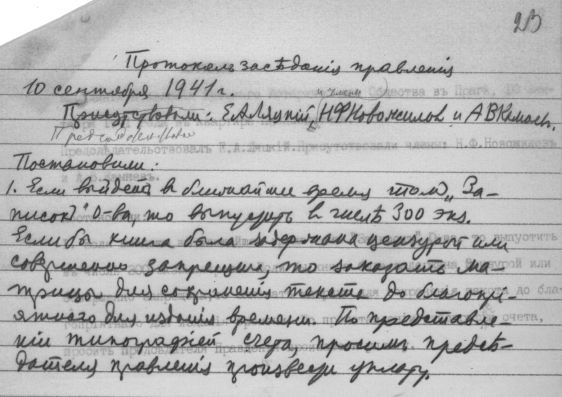 23
Протоколъ засѣданія правленія
10 сентября 1941 г.
и члены
Присутствовали: Е.А.Ляцкій, Н.Ф.Новожиловъ и А.В.
Предсѣдательствовалъ
Постановили:
1. Если выйдетъ въ ближайшее время томъ „За-
писокъ" О-ва, то выпустить въ числѣ 300 экз.
Если бы книга была задержана цензурой или
совершенно запрещена, то заказать ма-
трицы для сохраненія текста до благопрі-
ятнаго для изданія времени. По представле-
ніи типографіей счета, просимъ предсѣ-
дателя правленія произвести уплату.